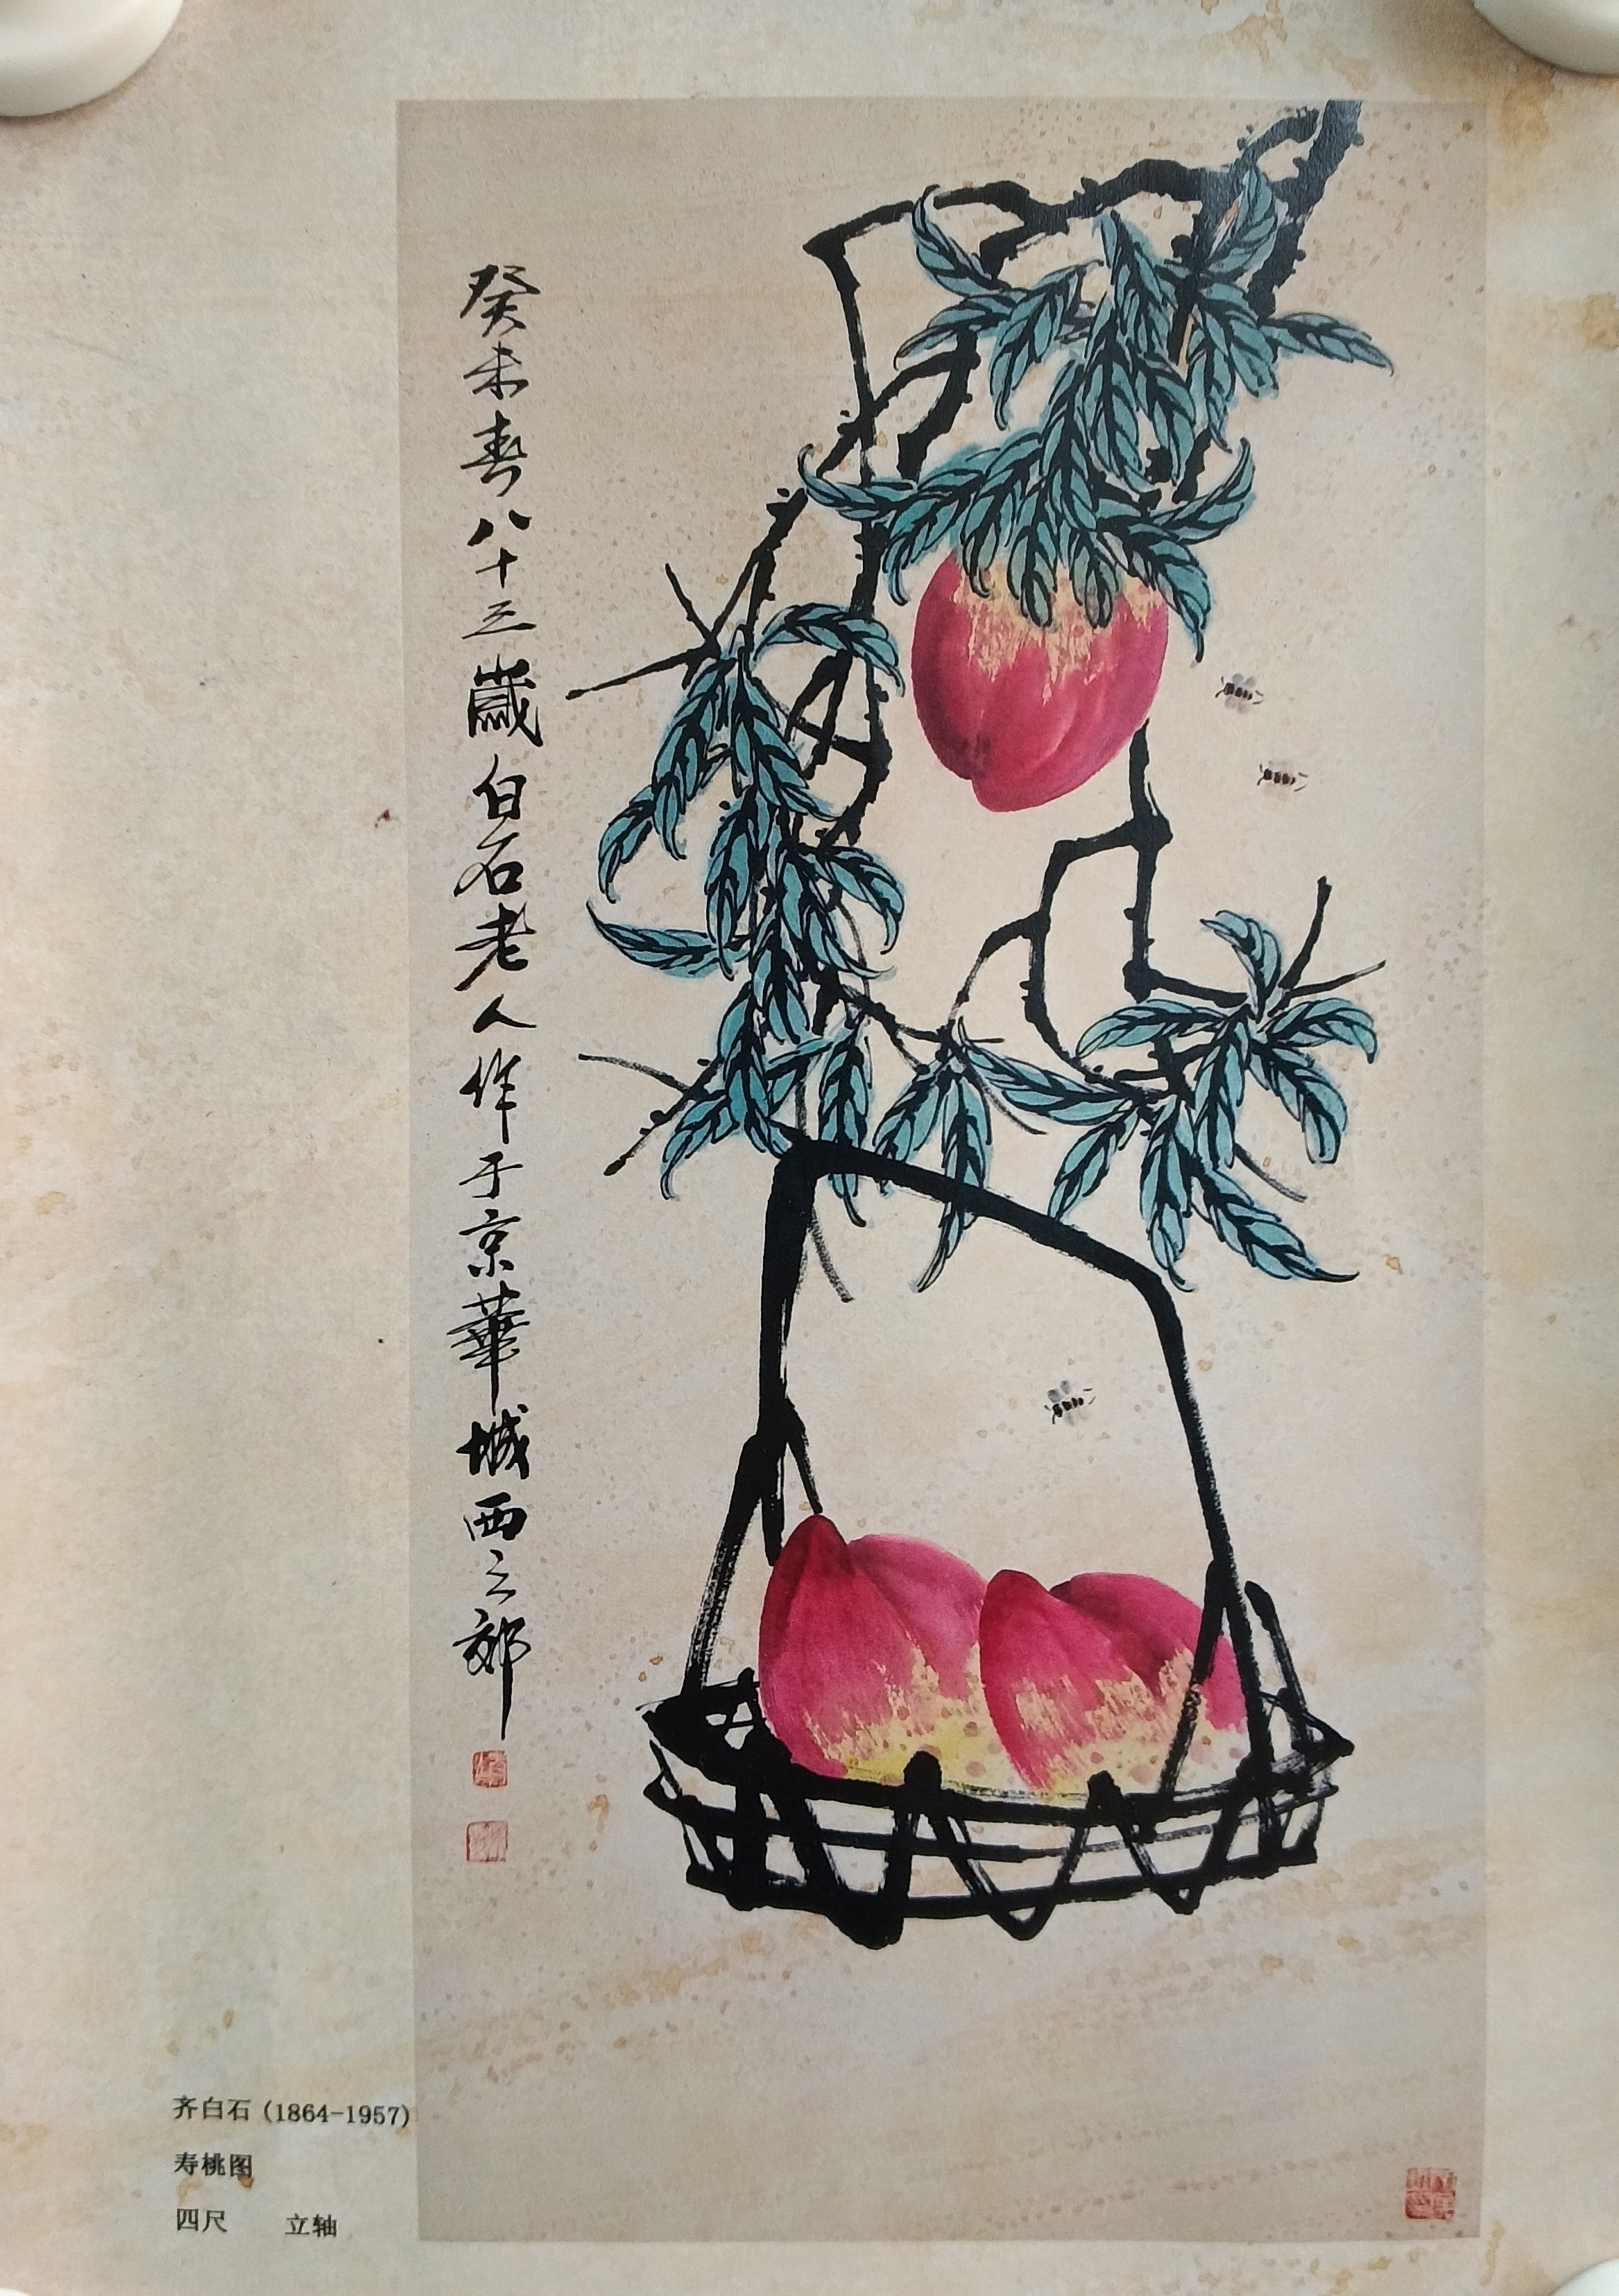 癸未春八十三歲白石老人作于京華城西之郊
齐白石(1864-1957)
寿桃图
四尺 立轴